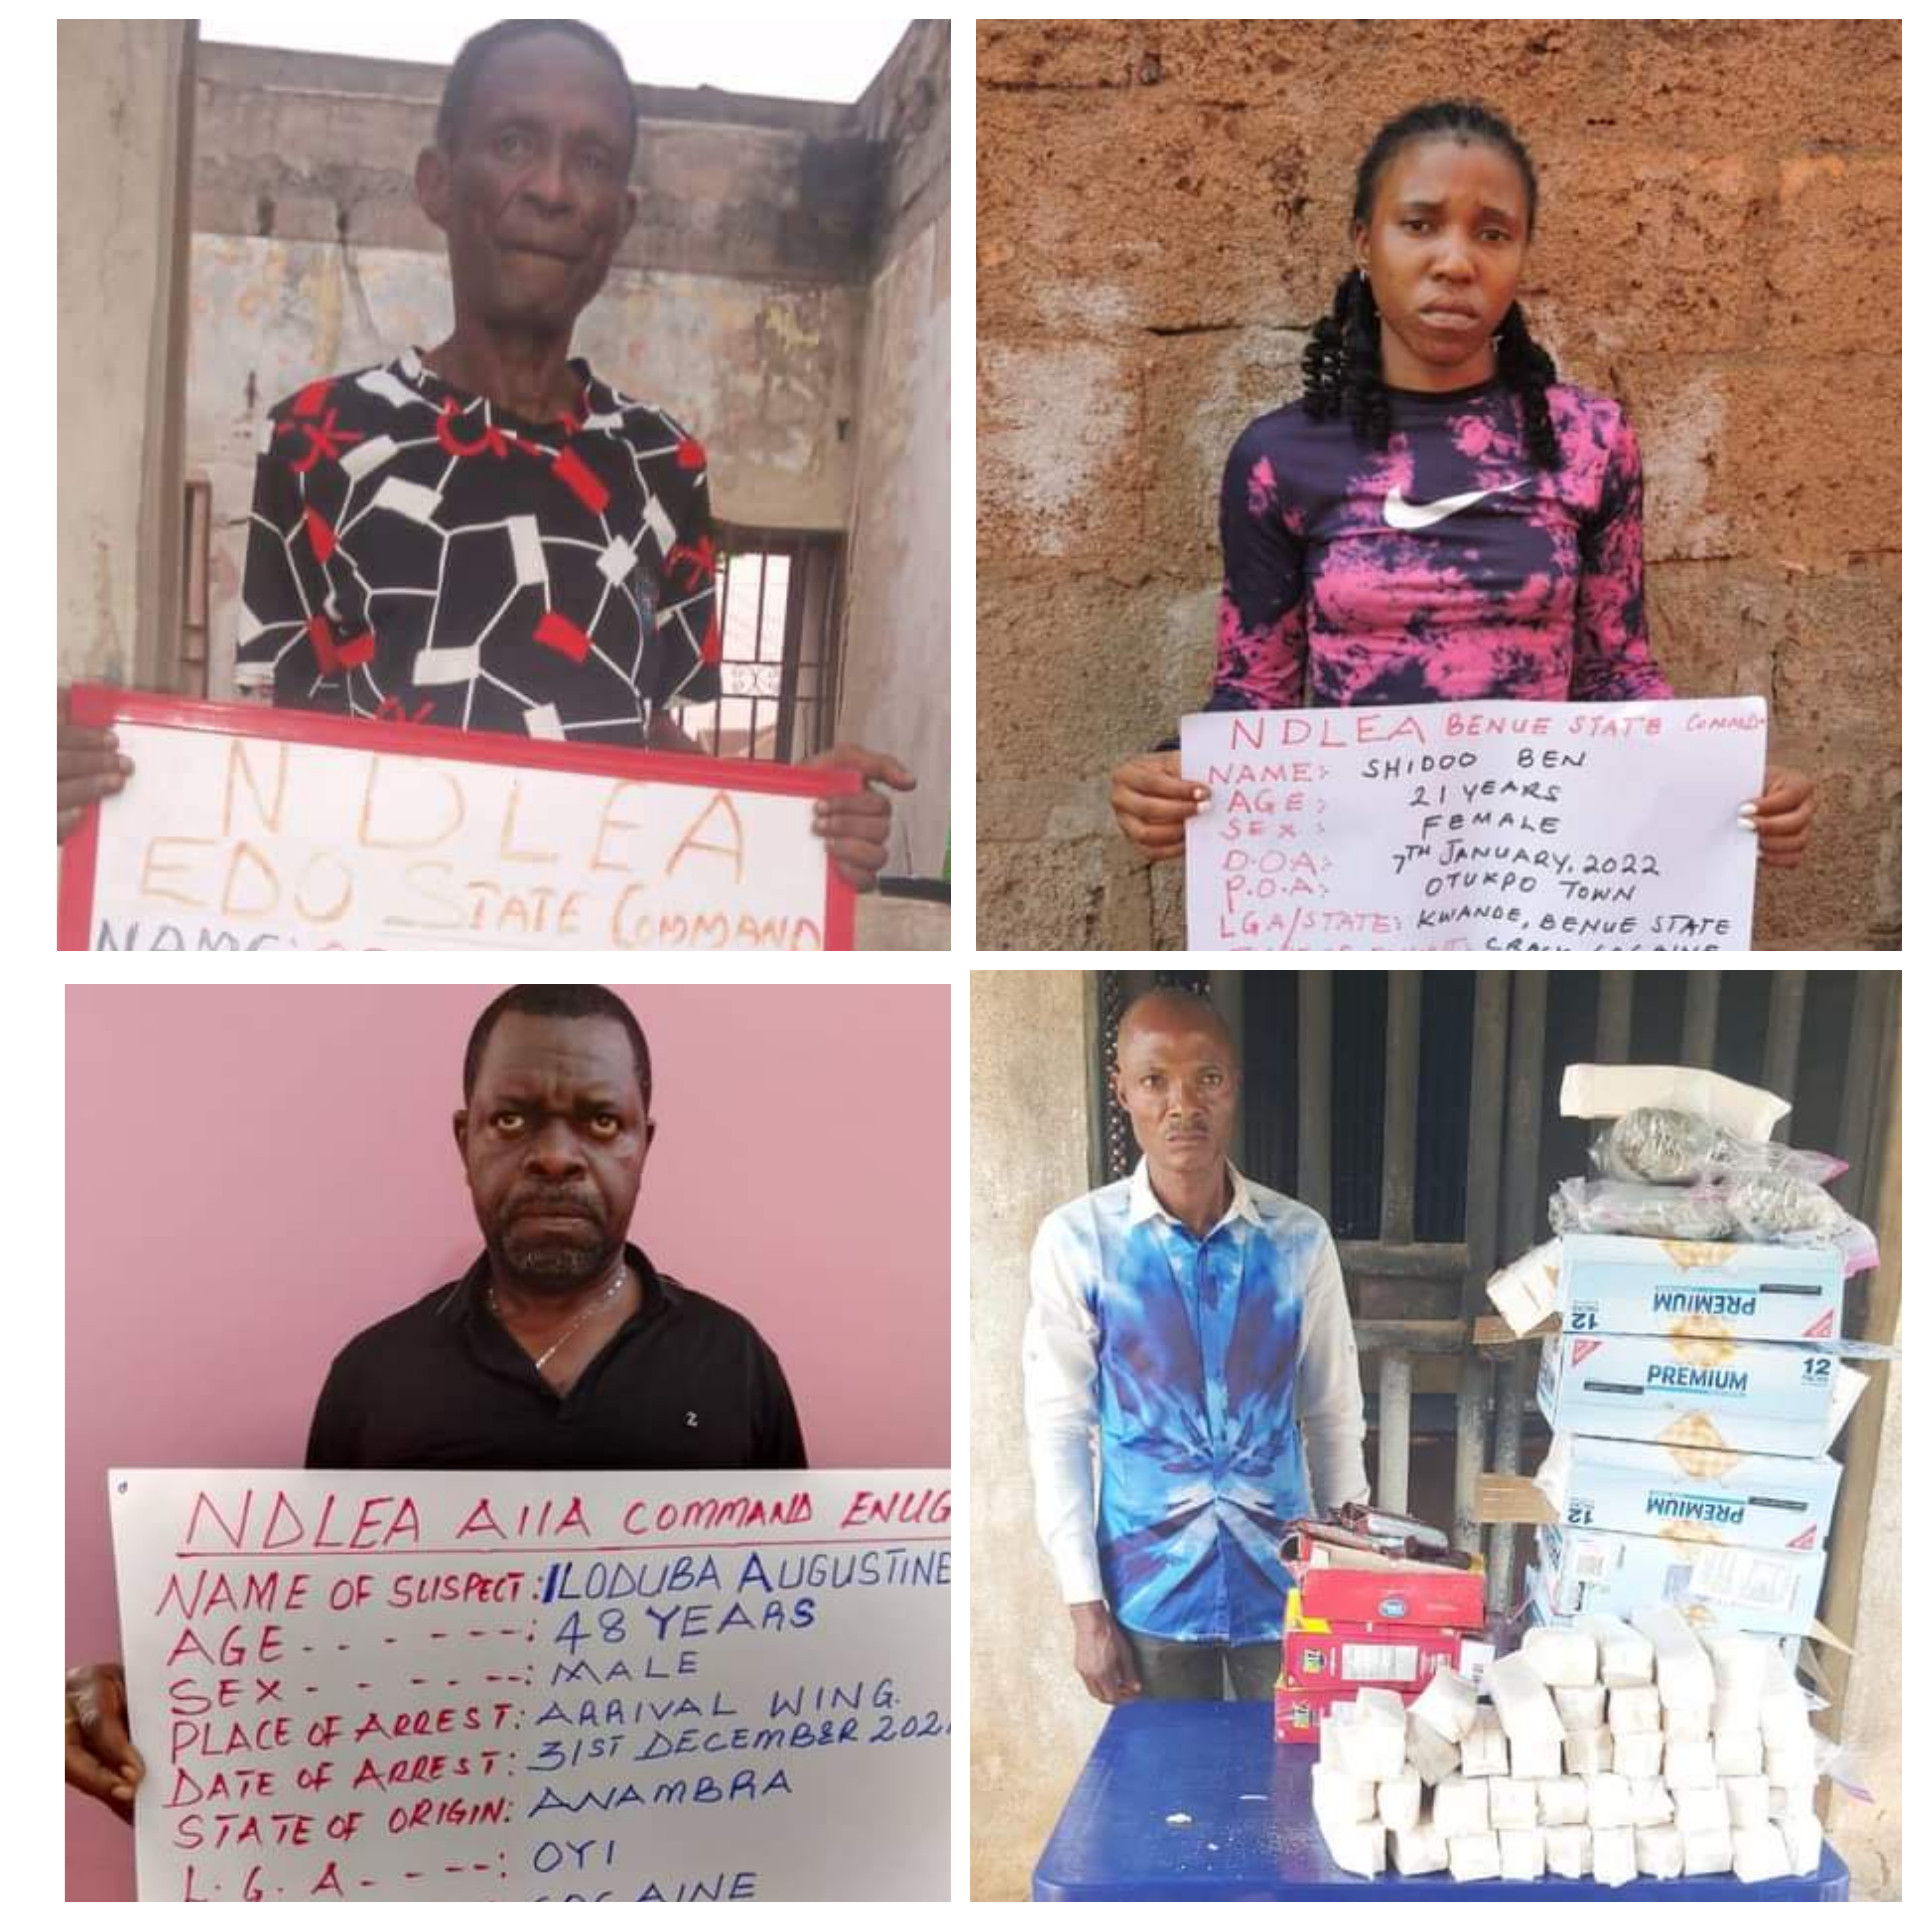 NDLEA
EDO STATE COMMAND
NAME:
NDLEA BENUE STATE COMMD.
NAME: SHIDOO BEN
AGE: 21 YEARS
SEX: FEMALE
D.O.A: 7TH JANUARY, 2022
P.O.A: OTUKPO TOWN
LGA/STATE: KWANDE, BENUE STATE
CRACK COCAINE
NDLEA AIIA COMMAND ENUG
NAME OF SUSPECT: ILODUBA AUGUSTINE
AGE - - - - - -: 48 YEARS
SEX - - - - - -: MALE
PLACE OF ARREST: ARRIVAL WING.
DATE OF ARREST: 31ST DECEMBER 202
STATE OF ORIGIN: ANAMBRA
L. G. A - - - - -: OYI
COCAINE
PREMIUM
12
PREMIUM
12
PREMIUM
12